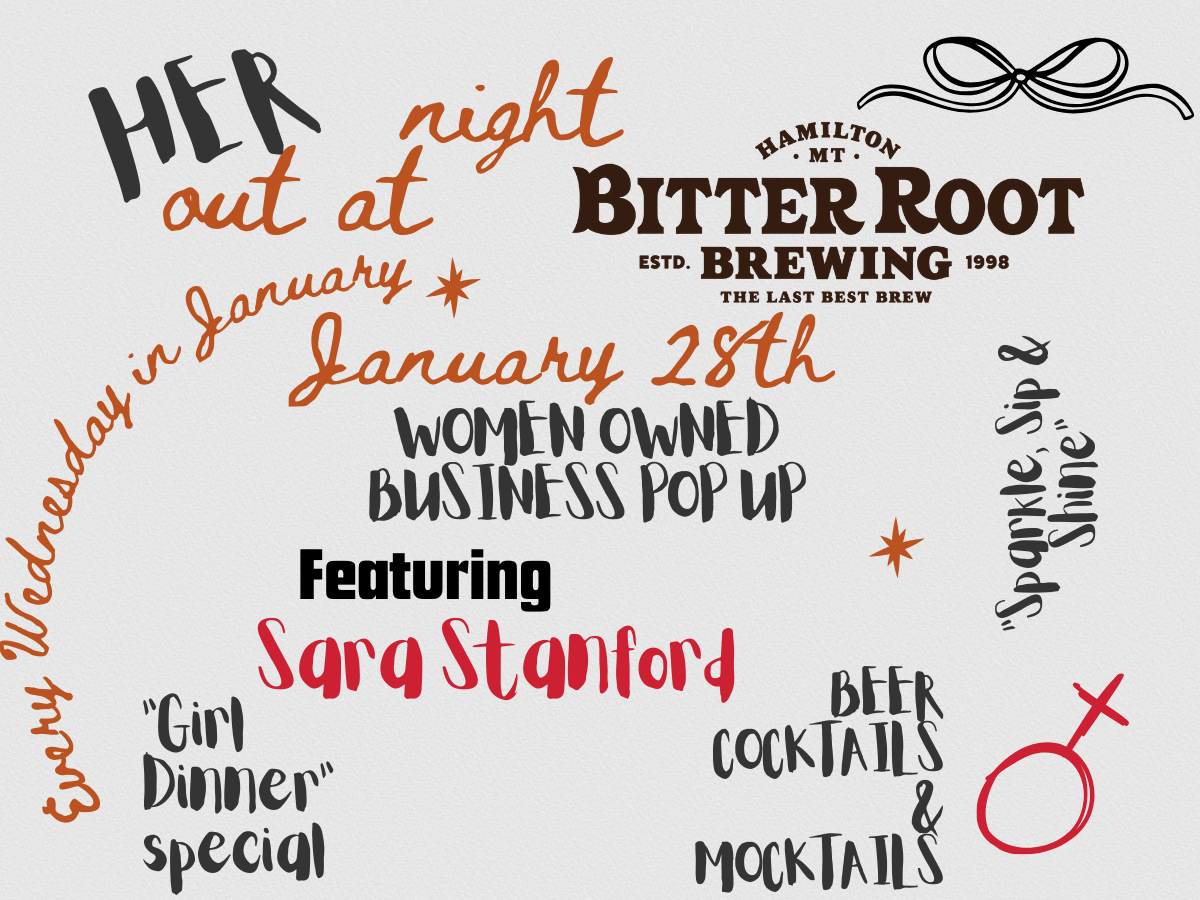 HER night
out at
HAMILTON
· MT ·
BITTER ROOT
ESTD. BREWING 1998
THE LAST BEST BREW
Every Wednesday in January
January 28th
WOMEN OWNED
BUSINESS POP UP
"Sparkle, Sip &
Shine"
Featuring
Sara Stanford
"Girl
Dinner"
special
BEER
COCKTAILS
&
MOCKTAILS